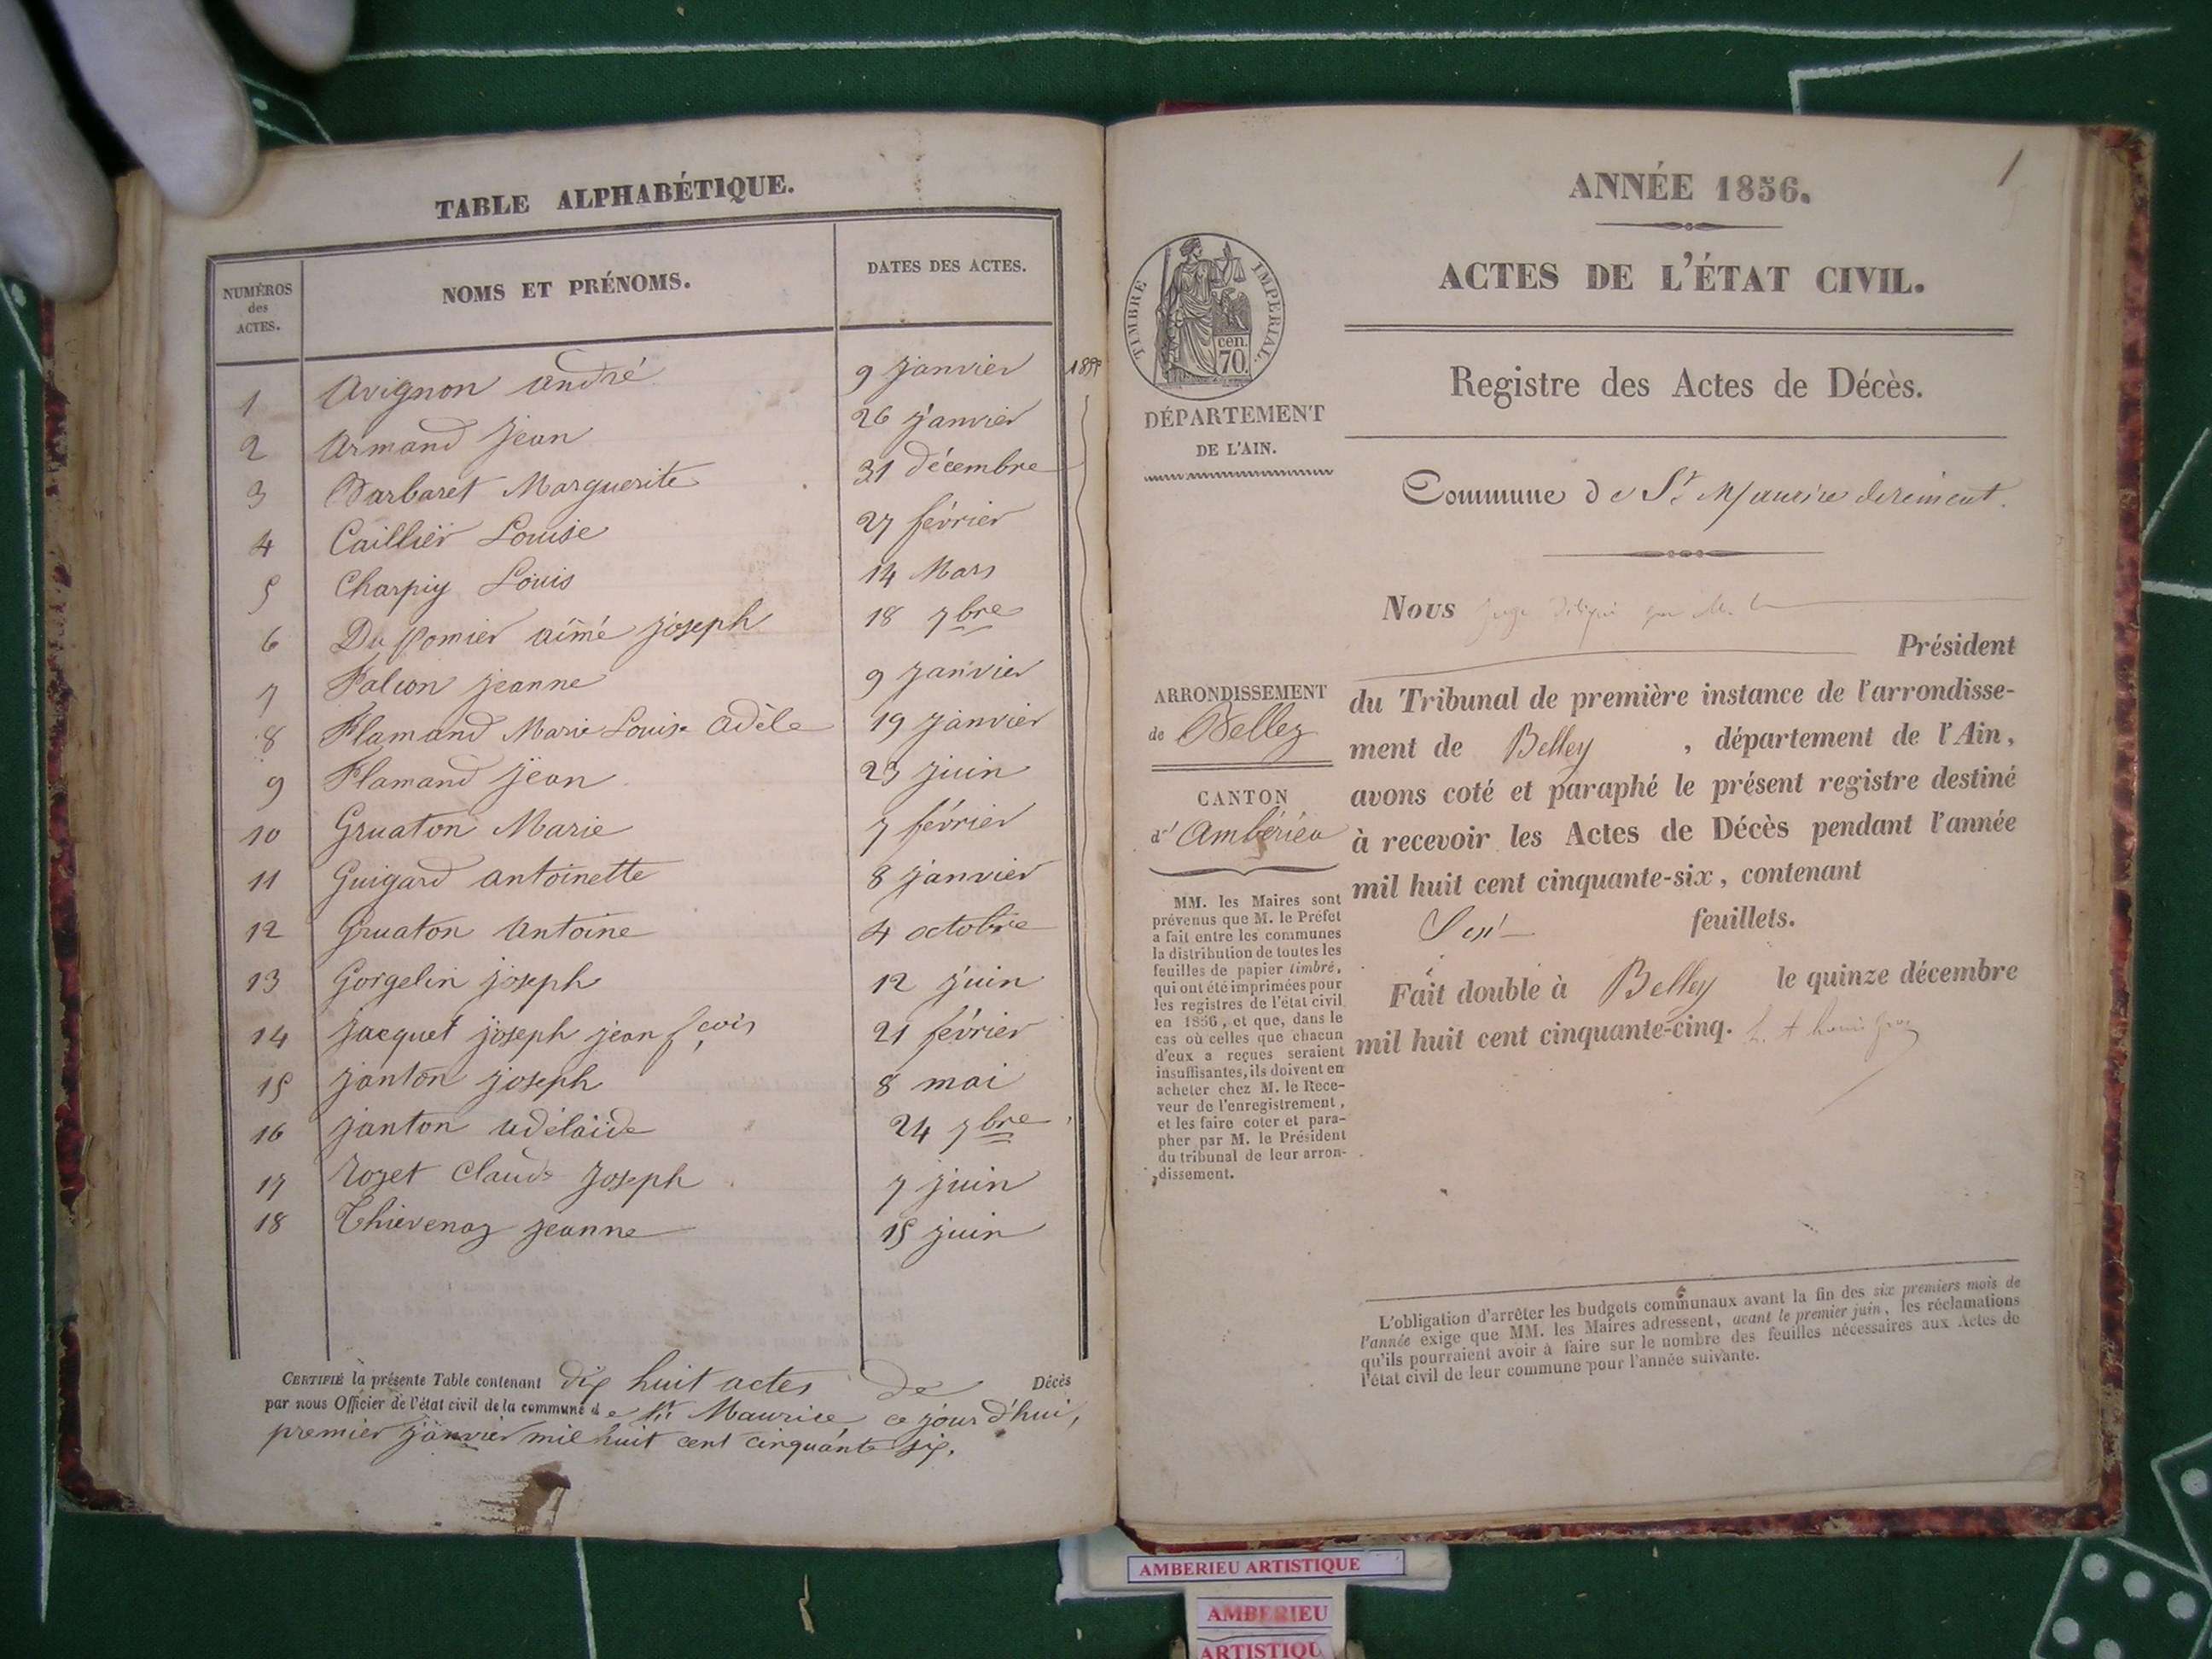 TABLE ALPHABÉTIQUE.
NUMÉROS des ACTES.
NOMS ET PRÉNOMS.
DATES DES ACTES.
1 Avignon andré 9 janvier
2 Armand jean 26 janvier
3 Barbaret Marguerite 31 décembre
4 Caillier Louise 27 février
5 Charpiy Louis 14 Mars
6 Du Pomier aimé joseph 18 7bre
7 Falcon jeanne 9 janvier
8 Flamand Marie Louise adèle 19 janvier
9 Flamand jean 23 juin
10 Gruaton Marie 7 février
11 Guigard antoinette 8 janvier
12 Gruaton antoine 4 octobre
13 Gorgelin joseph 12 juin
14 jacquet joseph jean fçois 21 février
15 janton joseph 8 mai
16 janton adélaïde 24 7bre
17 rozet Claude joseph 7 juin
18 Thievenaz jeanne 15 juin
CERTIFIÉ la présente Table contenant dix huit actes de Décès
par nous Officier de l'état civil de la commune de St Maurice ce jour d'hui,
premier janvier mil huit cent cinquante six.
1
ANNÉE 1856.
TIMBRE IMPÉRIAL.
cen.
70.
ACTES DE L'ÉTAT CIVIL.
Registre des Actes de Décès.
DÉPARTEMENT
DE L'AIN.
Commune de St Maurice deremens.
Nous juge délégué par M. le
Président
ARRONDISSEMENT
de Belley
CANTON
d'Ambérieu
MM. les Maires sont
prévenus que M. le Préfet
a fait entre les communes
la distribution de toutes les
feuilles de papier timbré,
qui ont été imprimées pour
les registres de l'état civil
en 1856, et que, dans le
cas où celles que chacun
d'eux a reçues seraient
insuffisantes, ils doivent en
acheter chez M. le Rece-
veur de l'enregistrement,
et les faire coter et para-
pher par M. le Président
du tribunal de leur arron-
dissement.
du Tribunal de première instance de l'arrondisse-
ment de Belley, département de l'Ain,
avons coté et paraphé le présent registre destiné
à recevoir les Actes de Décès pendant l'année
mil huit cent cinquante-six, contenant
feuillets.
Fait double à Belley le quinze décembre
mil huit cent cinquante-cinq.
L'obligation d'arrêter les budgets communaux avant la fin des six premiers mois de
l'année exige que MM. les Maires adressent, avant le premier juin, les réclamations
qu'ils pourraient avoir à faire sur le nombre des feuilles nécessaires aux Actes de
l'état civil de leur commune pour l'année suivante.
AMBERIEU ARTISTIQUE
AMBERIEU
ARTISTIQU